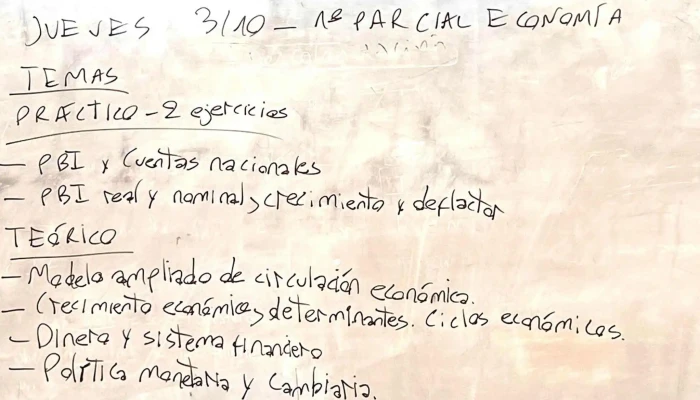 JUEVES 3/10 - 1º PARCIAL ECONOMÍA
TEMAS
PRÁCTICO - 2 ejercicios
- PBI y Cuentas nacionales
- PBI real y nominal, crecimiento y deflactor
TEÓRICO
- Modelo ampliado de circulación económica.
- Crecimiento económico, determinantes. Ciclos económicos.
- Dinero y sistema financiero
- Política monetaria y cambiaria.